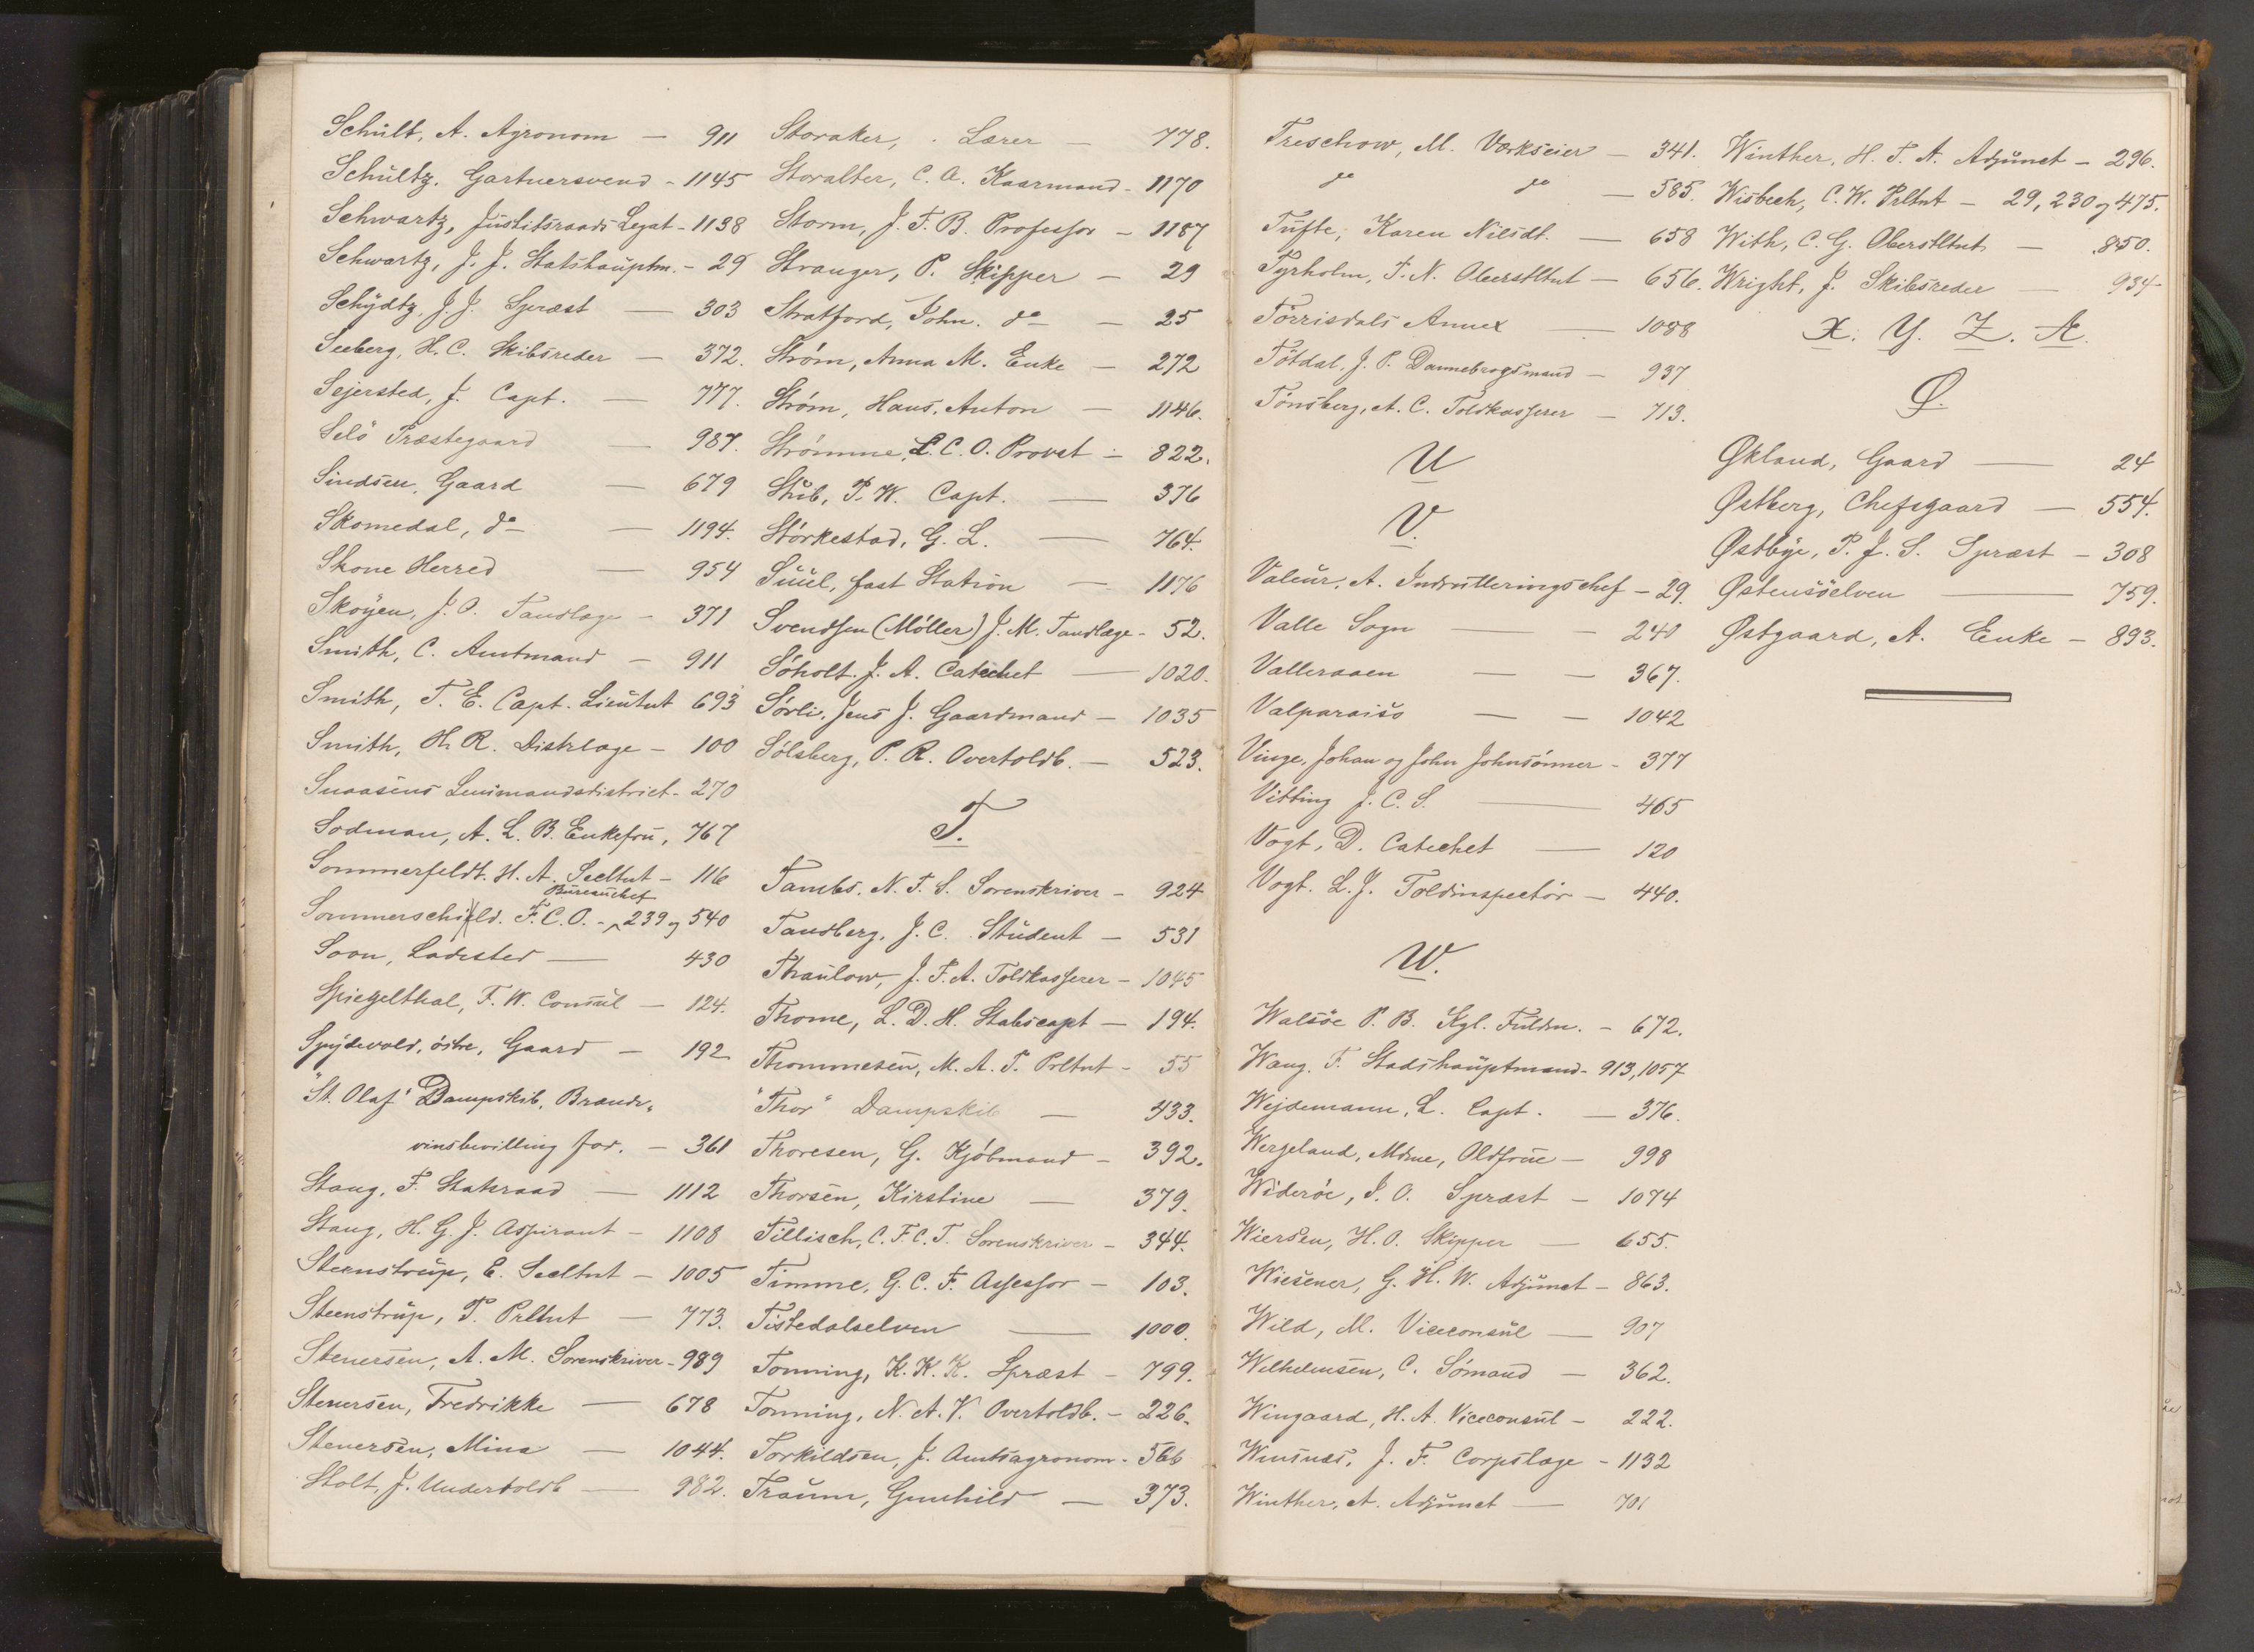 Schült, A. Agronom — 911
Schültz. Gartnersvend - 1145
Schwartz, Justitsraads Legat - 1138
Schwartz, J. J. Statshauptm. - 29
Schÿdtz, J. J. Spræst — 303
Seeberg, H. C. Skibsreder — 372.
Sejersted, J. Capt. — 777.
Selö Præstegaard — 987.
Sindsen, Gaard — 679
Skomedal, do — 1194.
Skone Herred — 954
Skoÿen, J. O. Tandlæge — 371
Smith, C. Amtmand — 911
Smith, T. E. Capt. Lieutnt 693
Smith, H. R. Distrlæge — 100
Snaasens Lensmandsdistrict - 270
Sodman, A. L. B. Enkefru, 767
Sommerfeldt. H. A. Secltnt — 116
Bureauchef
Sommerschield. F. C. O. - 239 og 540
Soon, Ladested — 430
Spiegelthal, F. W. Consul — 124.
Spÿdevold, östre, Gaard — 192
"St. Olaf" Dampskib, Brænde-
vinsbevilling for. — 361
Stang, F. Statsraad — 1112
Stang, H. G. J. Aspirant — 1108
Steenstrup, E. Secltnt — 1005
Steenstrup, P. Prltnt — 773.
Stenersen, A. M. Sorenskriver - 989
Stenersen, Fredrikke — 678
Stenersen, Mina — 1044.
Stolt, J. Undertoldb — 982.
Storaker, . Lærer — 778.
Storalter, C. A. Kaarmand - 1170
Storm, J. F. B. Professor — 1187
Stranger, P. Skipper — 29
Stratford, John. do — 25
Strøm, Anna M. Enke — 272
Strøm, Hans, Anton — 1146.
Strømme, L. C. O. Provst — 822.
Stub, P. W. Capt. — 376
Störkestad, G. L. — 764.
Suul, fast Station — 1176
Svendsen (Möller) J. M. Tandlæge - 52.
Søholt. J. A. Catechet — 1020.
Sørli, Jens J. Gaardmand — 1035
Sølsberg, P. R. Overtoldb. — 523.
T.
Tambs. N. T. S. Sorenskriver — 924
Tandberg, J. C. Student — 531
Thaulow, J. F. A. Toldkasserer — 1045
Thome, L. D. H. Stabscapt — 194.
Thommesen, M. A. T. Prltnt — 55
"Thor" Dampskib — 433.
Thoresen, G. Kjöbmand — 392.
Thorsen, Kirstine — 379.
Tillisch, C. F. C. T. Sorenskriver — 344.
Timme, G. C. F. Assessor — 103.
Tistedalselven — 1000.
Tonning, K. K. K. Spræst — 799.
Tonning, N. A. V. Overtoldb. — 226.
Torkildsen, J. Amtsagronom - 566
Traum, Gunhild — 373.
Treschow, M. Værkseier — 341.
do do — 585.
Tufte, Karen Nilsdt. — 658
Tyrholm, F. N. Oberstltnt — 656.
Törrisdals Annex — 1088
Tötdal, J. P. Dannebrogsmand — 937
Tönsberg, A. C. Toldkasserer — 713.
U
V.
Valeur, A. Indrulleringschef — 29.
Valle Sogn — 240
Valleraaen — 367.
Valparaiso — 1042
Vinge, Johan og John Johnsönner - 377
Vitting J. C. S. — 465
Vogt, D. Catechet — 120
Vogt. L. J. Toldinspectör — 440.
W.
Walsöe P. B. Kgl. Fuldm. — 672.
Wang. F. Stadshauptmand - 913, 1057
Wejdemann, L. Capt. — 376.
Wergeland, Mdme, Oldfrue — 998
Wideröe, J. O. Spræst — 1074
Wiersen, H. O. Skipper — 655.
Wiesener, G. H. W. Adjunct — 863.
Wild, M. Viceconsul — 907
Wilhelmsen, C. Sömand — 362.
Wingaard, H. A. Viceconsul — 222.
Winsnes, J. F. Corpslæge — 1132
Winther, A. Adjunct — 701
Winther, H. T. A. Adjunct — 296.
Wisbech, C. W. Prltnt — 29, 230 og 475.
With, C. G. Oberstltnt. — 850.
Wright, J. Skibsreder — 934
X. Y. Z. Æ.
Ø.
Økland, Gaard — 24
Østberg, Chefsgaard — 554.
Østbÿe, P. J. S. Spræst — 308
Østensöelven — 759.
Østgaard, A. Enke — 893.